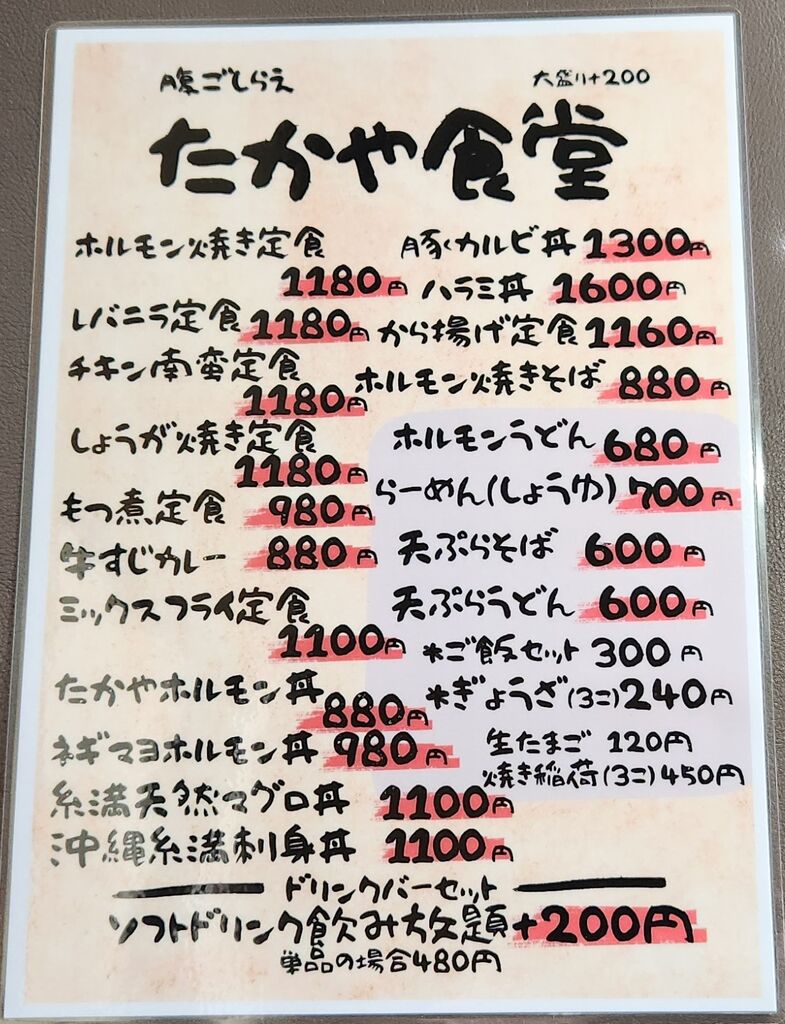 腹ごしらえ
大盛り+200
たかや食堂
ホルモン焼き定食
1180円
レバニラ定食 1180円
チキン南蛮定食
1180円
しょうが焼き定食
1180円
もつ煮定食 980円
牛すじカレー 880円
ミックスフライ定食
1100円
たかやホルモン丼
880円
ネギマヨホルモン丼 980円
糸満天然マグロ丼 1100円
沖縄糸満刺身丼 1100円
豚カルビ丼 1300円
ハラミ丼 1600円
から揚げ定食 1160円
ホルモン焼きそば 880円
ホルモンうどん 680円
らーめん(しょうゆ) 700円
天ぷらそば 600円
天ぷらうどん 600円
*ご飯セット 300円
*ぎょうざ(3コ) 240円
生たまご 120円
焼き稲荷(3コ) 450円
ドリンクバーセット
ソフトドリンク飲み放題+200円
単品の場合480円